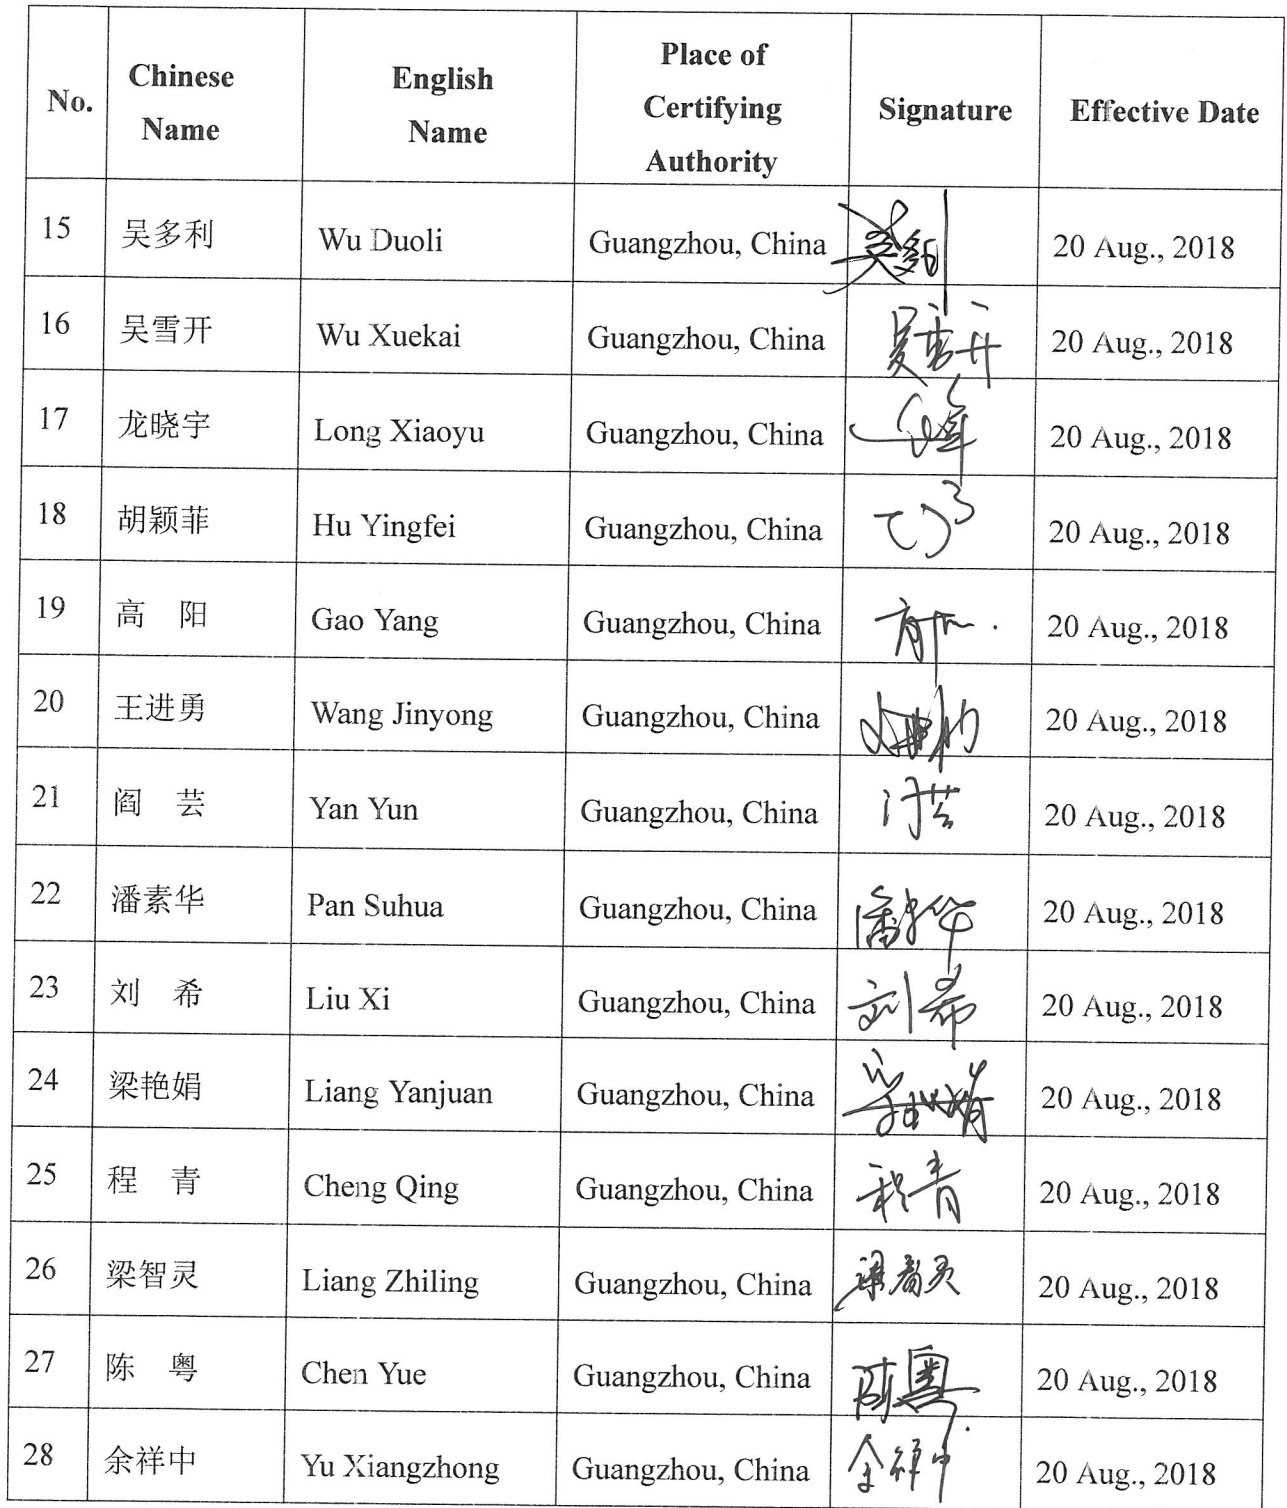 No. Chinese Name English Name Place of Certifying Authority Signature Effective Date
15 吴多利 Wu Duoli Guangzhou, China 吴多利 20 Aug., 2018
16 吴雪开 Wu Xuekai Guangzhou, China 吴雪开 20 Aug., 2018
17 龙晓宇 Long Xiaoyu Guangzhou, China 20 Aug., 2018
18 胡颖菲 Hu Yingfei Guangzhou, China 20 Aug., 2018
19 高 阳 Gao Yang Guangzhou, China 20 Aug., 2018
20 王进勇 Wang Jinyong Guangzhou, China 20 Aug., 2018
21 阎 芸 Yan Yun Guangzhou, China 20 Aug., 2018
22 潘素华 Pan Suhua Guangzhou, China 潘素华 20 Aug., 2018
23 刘 希 Liu Xi Guangzhou, China 刘希 20 Aug., 2018
24 梁艳娟 Liang Yanjuan Guangzhou, China 20 Aug., 2018
25 程 青 Cheng Qing Guangzhou, China 程青 20 Aug., 2018
26 梁智灵 Liang Zhiling Guangzhou, China 梁智灵 20 Aug., 2018
27 陈 粤 Chen Yue Guangzhou, China 陈粤 20 Aug., 2018
28 余祥中 Yu Xiangzhong Guangzhou, China 余祥中 20 Aug., 2018